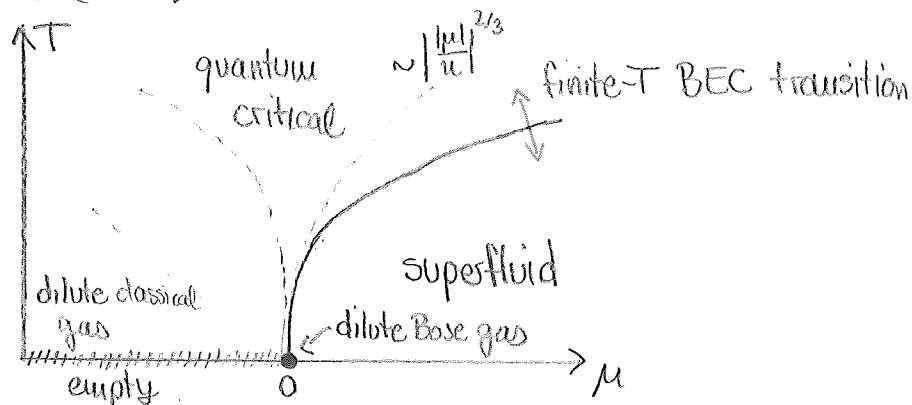 T
quantum
critical
~||μ|/u|^{2/3}
finite-T BEC transition
superfluid
dilute classical
gas
dilute Bose gas
empty
0
μ